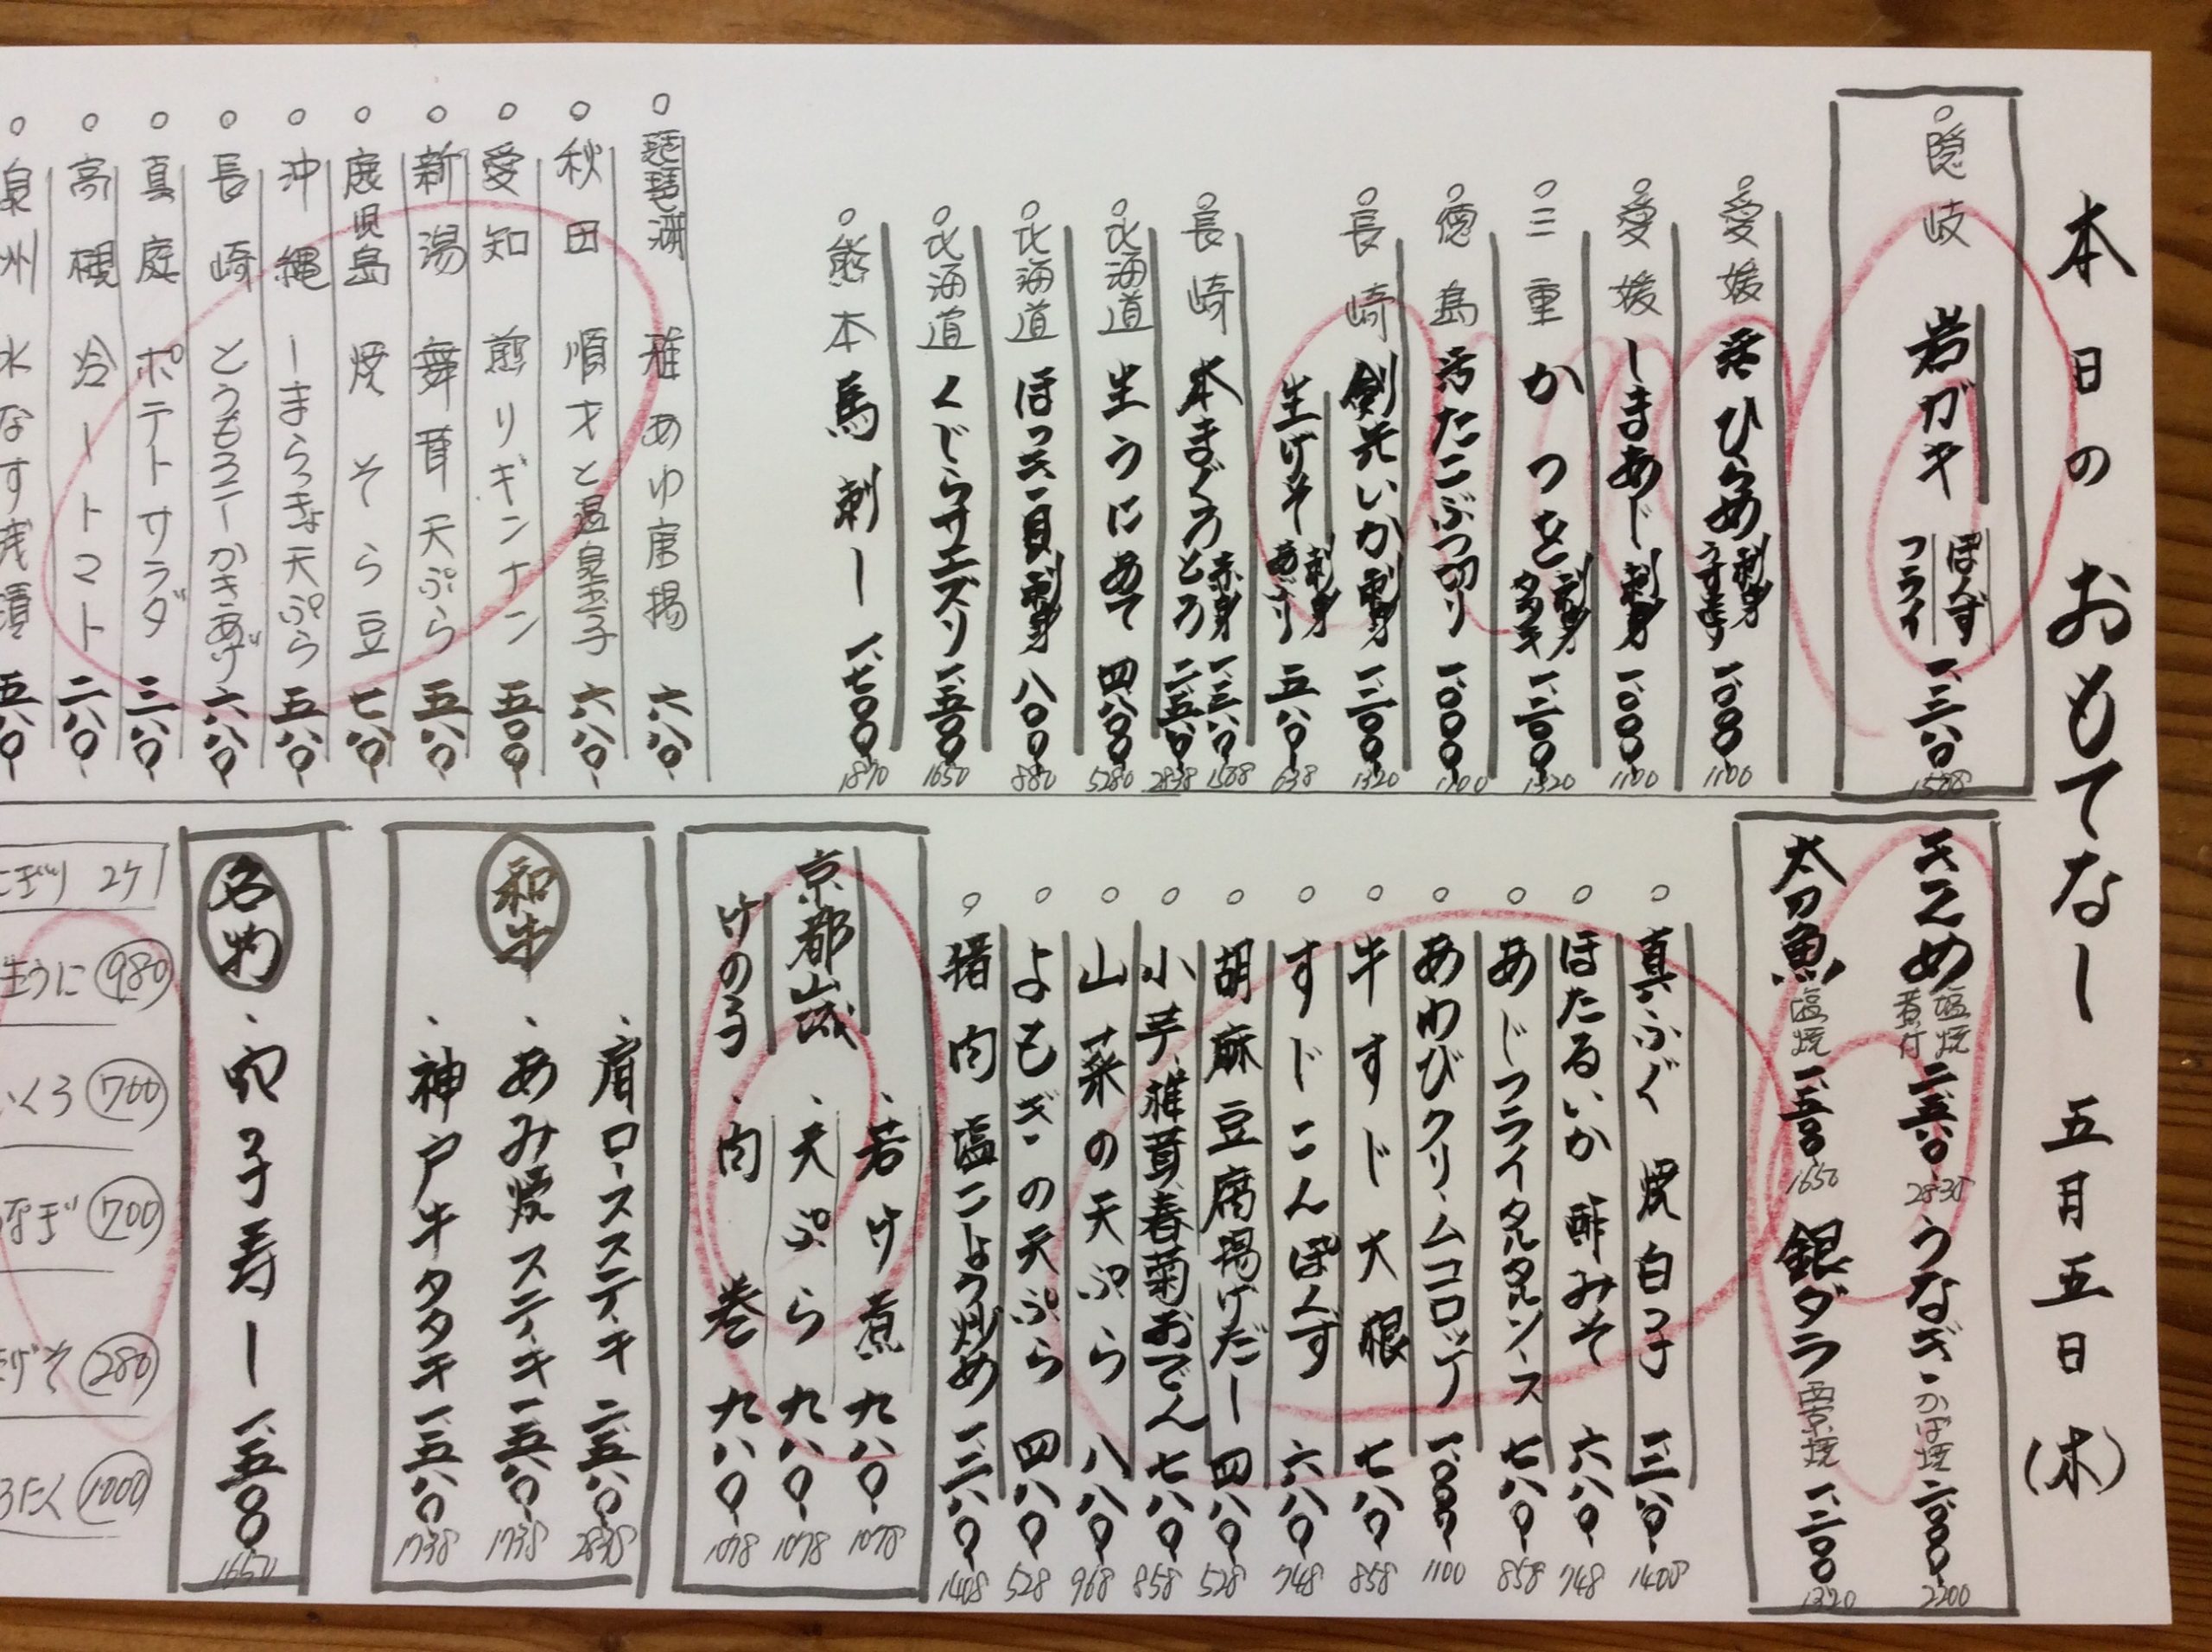 本日のおもてなし 五月五日(木)
隠岐 岩ガキ ぽんず フライ 一、三八〇
愛媛 活ひらめ 刺身 うす造り 一、〇〇〇 1100
愛媛 しまあじ 刺身 一、〇〇〇 1100
三重 かつを 刺身 タタキ 一、二〇〇 1320
徳島 活たこぶつ切り 一、〇〇〇
長崎 剣先いか 刺身 一、二〇〇 1320
生げそ 刺身 あぶり 五八〇 638
長崎 本まぐろ 赤身 一、三八〇 とろ 二、五八〇 2838
北海道 生うにあて 四、八〇〇 5280
北海道 ほっき貝 刺身 八〇〇 880
北海道 くじらサエズリ 一、五〇〇 1650
熊本 馬刺し 一、七〇〇 1870
琵琶湖 稚あゆ唐揚 六八〇
秋田 順才と温泉玉子 六八〇
愛知 煎りギンナン 五〇〇
新潟 舞茸天ぷら 五八〇
鹿児島 焼そら豆 七八〇
沖縄 しまらっきょ天ぷら 五八〇
長崎 とうもろこしかきあげ 六八〇
真庭 ポテトサラダ 三八〇
高槻 冷しトマト 二八〇
泉州 水なす浅漬 五八〇
きこめ 塩焼 煮付 二、五八〇 2838
うなぎ かば焼 二、〇〇〇 2200
太刀魚 塩焼 一、五〇〇 1650
銀ダラ 西京焼 一、二〇〇 1320
真ふぐ 焼白子 一、二八〇 1408
ほたるいか 酢みそ 六八〇 748
あじフライタルタルソース 七八〇 858
あわびクリームコロッケ 一、〇〇〇 1100
牛すじ大根 七八〇 858
すじこんぽんず 六八〇 748
胡麻豆腐揚げだし 四八〇 528
小芋、椎茸、春菊おでん 七八〇 858
山菜の天ぷら 八八〇 968
よもぎの天ぷら 四八〇 528
猪肉塩こしょう炒め 一、二八〇 1408
京都山城
けの子
・若け煮 九八〇 1078
・天ぷら 九八〇 1078
・肉巻 九八〇 1078
和牛
・肩ロースステーキ 二、五八〇 2838
・あみ焼ステーキ 一、五八〇 1738
・神戸牛タタキ 一、五八〇 1738
名物
・穴子寿し 一、五〇〇 1650
にぎり 2ケ
生うに 980
いくら 700
なぎ 700
げそ 280
ろたく 1000